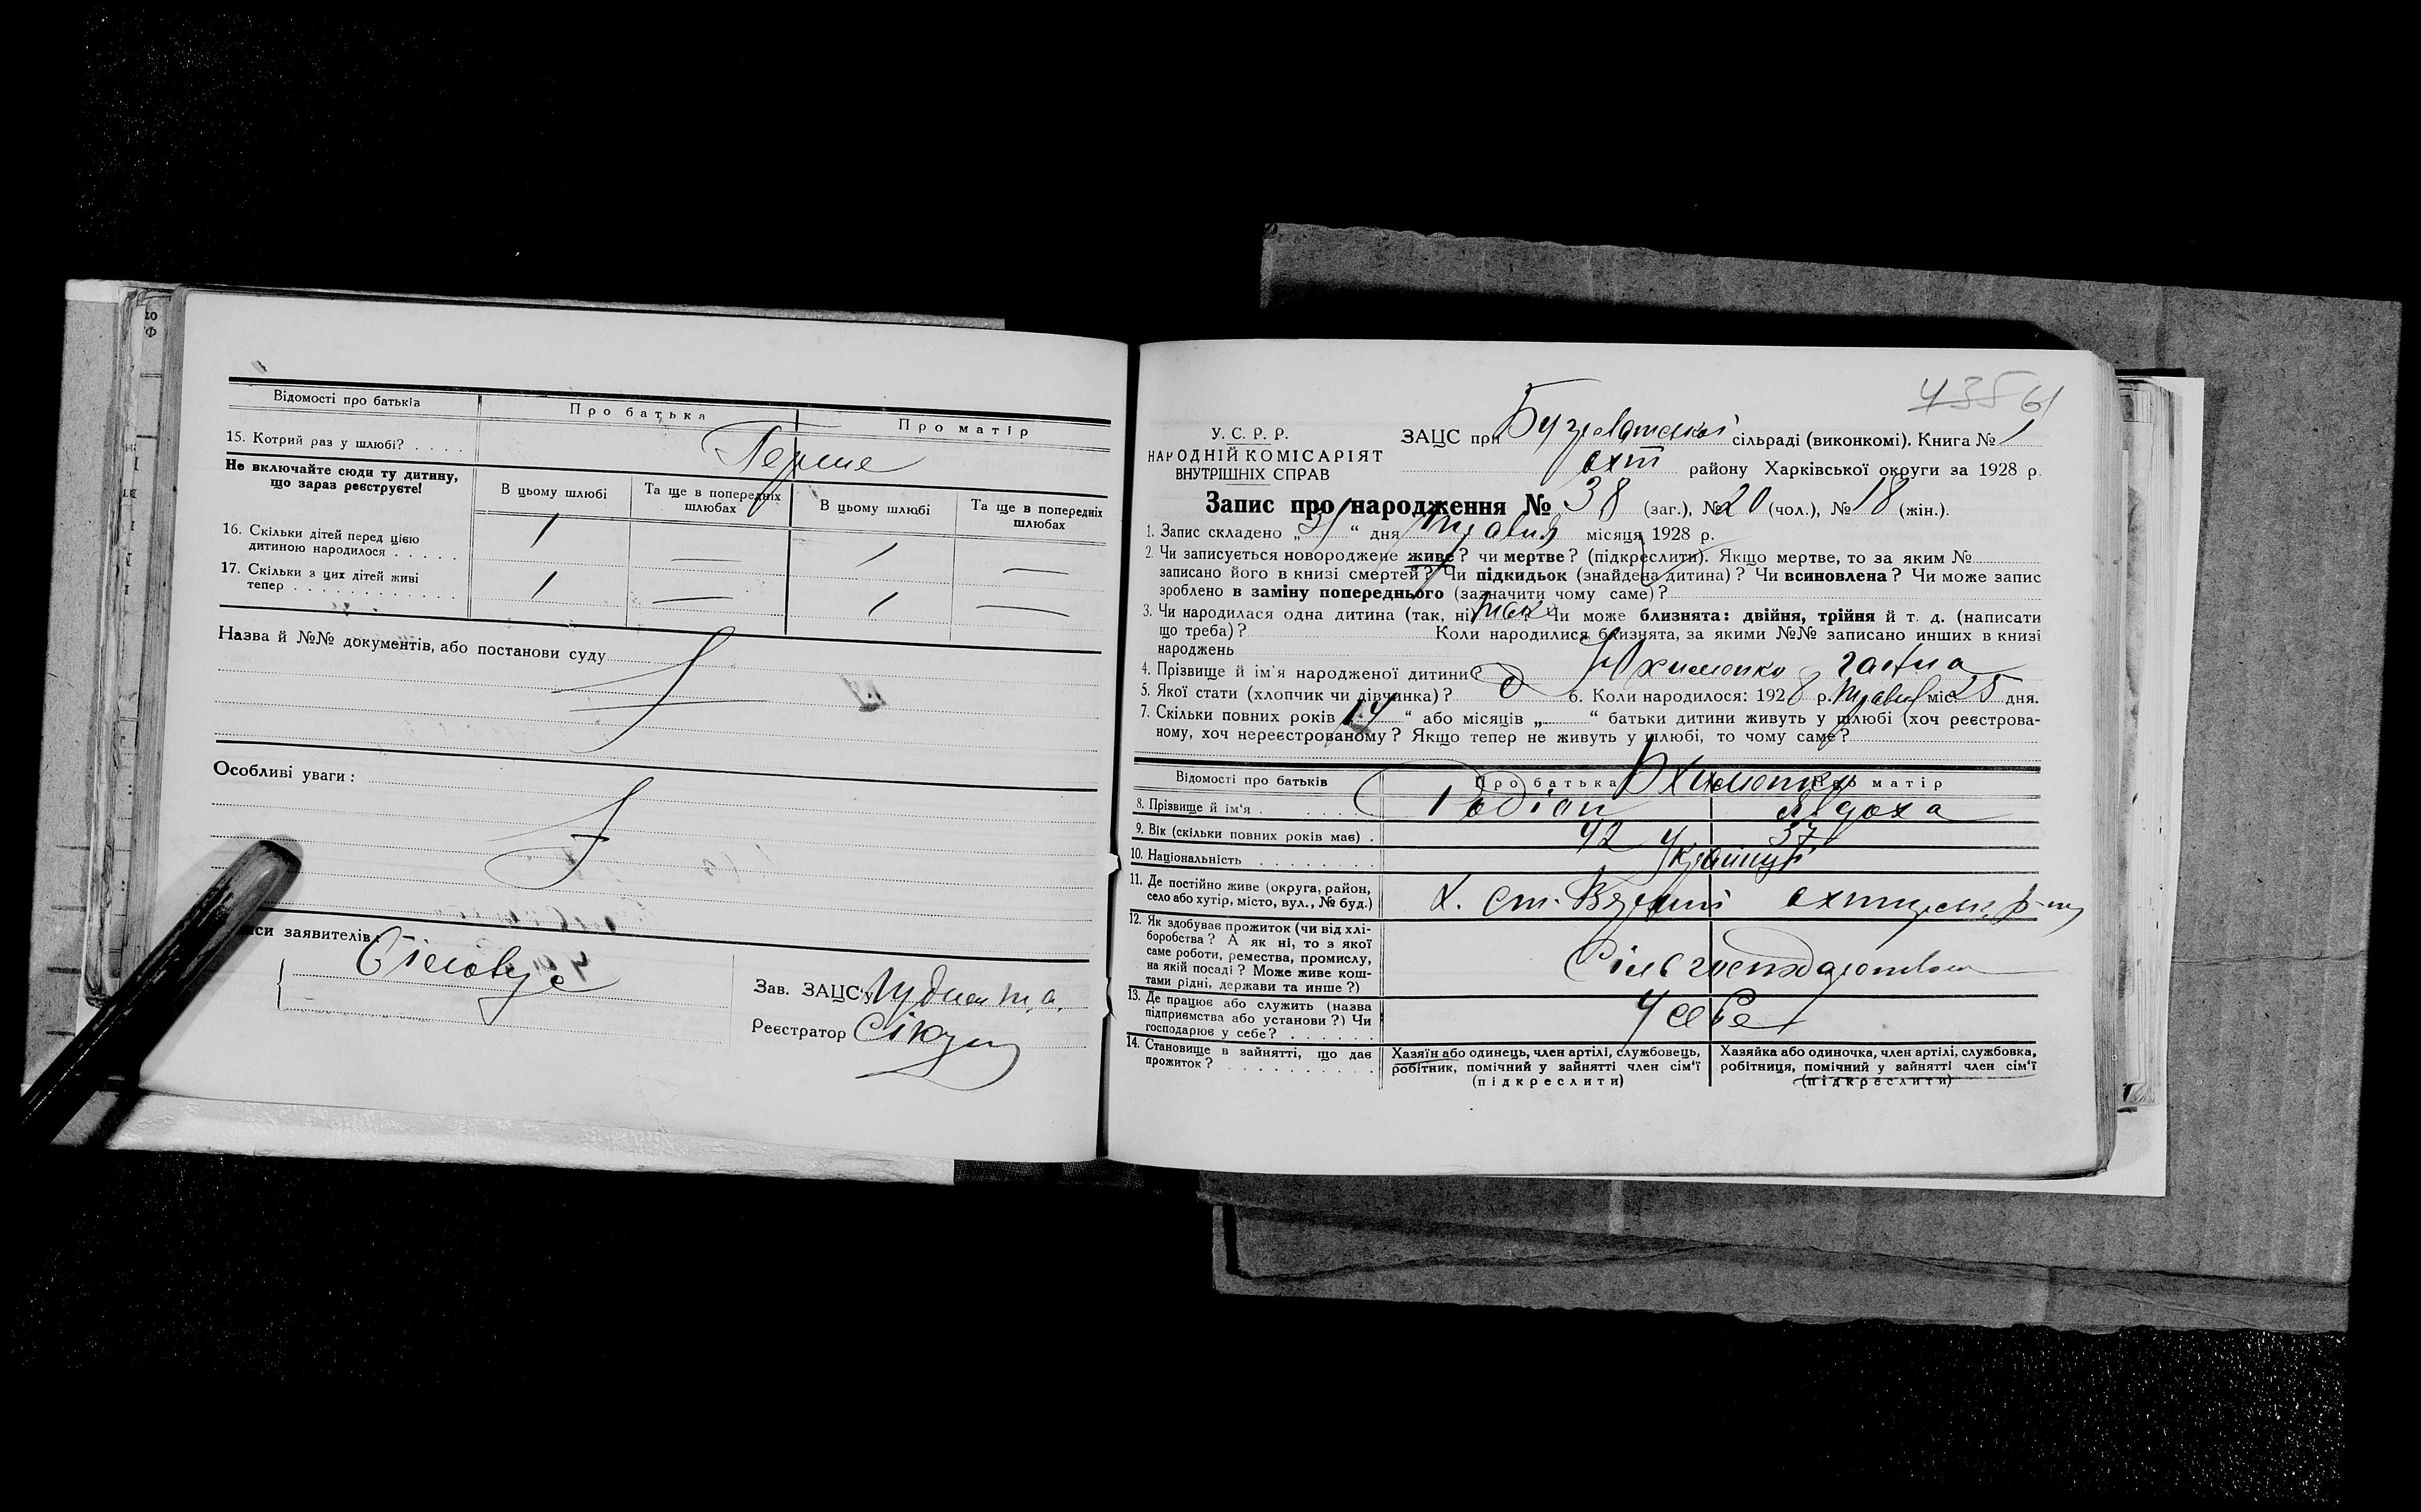 Відомості про батьків
Про батька
Про матір
15. Котрий раз у шлюбі? . . . .
Перше
Не включайте сюди ту дитину,
що зараз реєструєте!
В цьому шлюбі
Та ще в попередніх
шлюбах
В цьому шлюбі
Та ще в попередніх
шлюбах
16. Скільки дітей перед цією
дитиною народилося . . . . .
1 — 1 —
17. Скільки з цих дітей живі
тепер . . . . . . . . . . . . .
1 — 1 —
Назва й №№ документів, або постанови суду
Особливі уваги:
си заявителів:
Зав. ЗАЦС'у
Реєстратор
435 61
У. С. Р. Р.
НАРОДНІЙ КОМІСАРІЯТ
ВНУТРІШНІХ СПРАВ
ЗАЦС при сільраді (виконкомі). Книга № 1
Охт району Харківської округи за 1928 р.
Запис про народження № 38 (заг.), № 20 (чол.), № 18 (жін.).
1. Запис складено „31“ дня травня місяця 1928 р.
2. Чи записується новороджене живе? чи мертве? (підкреслити). Якщо мертве, то за яким №
записано його в книзі смертей? Чи підкидьок (знайдена дитина)? Чи всиновлена? Чи може запис
зроблено в заміну попереднього (зазначити чому саме)?
3. Чи народилася одна дитина (так, ні) так Чи може близнята: двійня, трійня й т. д. (написати
що треба)? Коли народилися близнята, за якими №№ записано инших в книзі
народжень
4. Прізвище й ім'я народженої дитини?
5. Якої стати (хлопчик чи дівчинка)? д 6. Коли народилось: 1928 р. травня міс. 25 дня.
7. Скільки повних років „14“ або місяців „ “ батьки дитини живуть у шлюбі (хоч реєстрова-
ному, хоч нереєстрованому? Якщо тепер не живуть у шлюбі, то чому саме?
Відомості про батьків
Про батька
Про матір
8. Прізвище й ім'я . . . . . . .
Родіон Явдоха
9. Вік (скільки повних років має) .
42 37
10. Національність . . . . . . . .
Українці
11. Де постійно живе (округа, район,
село або хутір, місто, вул., № буд.)
12. Як здобуває прожиток (чи від хлі-
боробства? А як ні, то з якої
саме роботи, ремества, промислу,
на якій посаді? Може живе кош-
тами рідні, держави та инше?)
13. Де працює або служить (назва
підприємства або установи?) Чи
господарює у себе? . . . . . .
У себе
14. Становище в зайнятті, що дає
прожиток? . . . . . . . . . . .
Хазяїн або одинець, член артілі, службовець,
робітник, помічний у зайнятті член сім'ї
(підкреслити)
Хазяйка або одиночка, член артілі, службовка,
робітниця, помічний у зайнятті член сім'ї
(підкреслити)